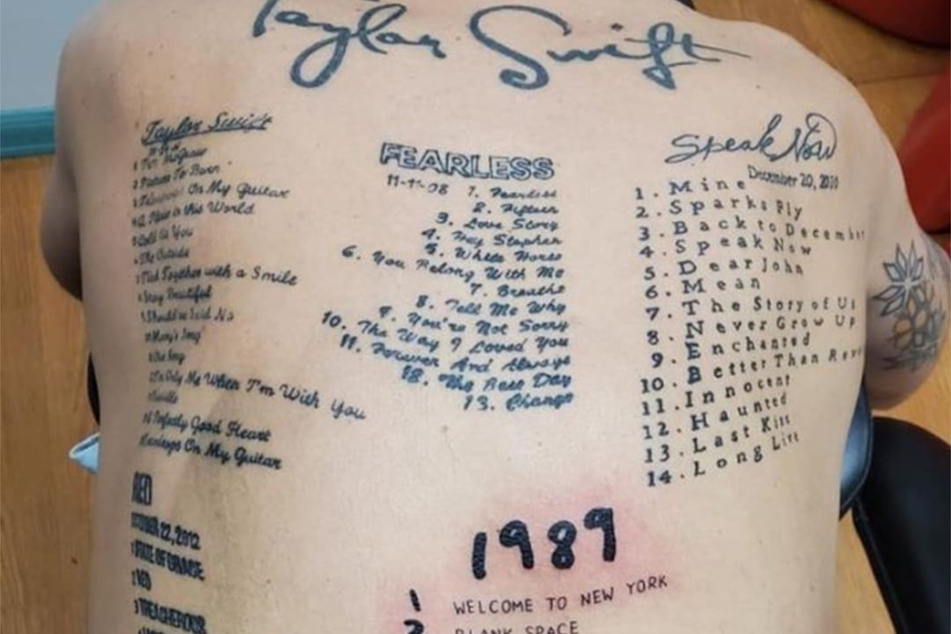 Taylor Swift
Taylor Swift
Tim McGraw
Picture To Burn
On My Guitar
in this World
Cold As You
The Outside
Tied Together with a Smile
Stay Beautiful
Should've Said No
Mary's Song
Our Song
Only Me When I'm With You
Invisible
Perfectly Good Heart
On My Guitar
FEARLESS
11-11-08 1. Fearless
2. Fifteen
3. Love Story
4. Hey Stephen
5. White Horse
6. You Belong With Me
7. Breathe
8. Tell Me Why
9. You're Not Sorry
10. The Way I Loved You
11. Forever And Always
12. The Best Day
13. Change
Speak Now
December 20, 2010
1. Mine
2. Sparks Fly
3. Back to December
4. Speak Now
5. Dear John
6. Mean
7. The Story of Us
8. Never Grow Up
9. Enchanted
10. Better Than
11. Innocent
12. Haunted
13. Last Kiss
14. Long Live
RED
22, 2012
STATE OF GRACE
2 RED
3 TREACHEROUS
1989
1 WELCOME TO NEW YORK
2 BLANK SPACE